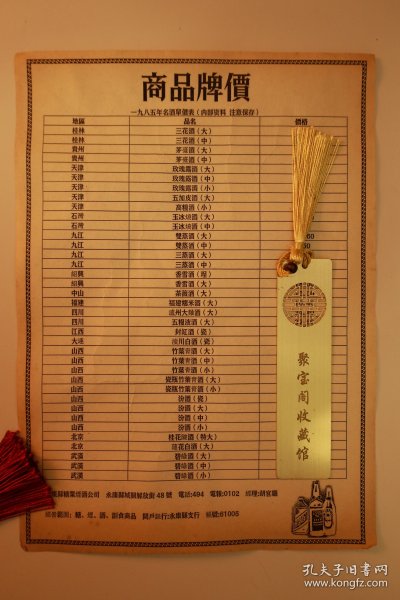 商品牌價
一九八五年名酒單價表（內部資料 注意保存）
地區 品名 價格
桂林 三花酒（大）
桂林 三花酒（中）
貴州 茅臺酒（大）
貴州 茅臺酒（中）
天津 玫瑰露酒（大）
天津 玫瑰露酒（中）
天津 玫瑰露酒（小）
天津 五加皮酒（大）
天津 高糧酒（小）
石灣 玉冰燒酒（大）
石灣 玉冰燒酒（中）
九江 雙蒸酒（大）
九江 雙蒸酒（中）
九江 三蒸酒（大）
九江 三蒸酒（中）
紹興 香雪酒（埕）
紹興 香雪酒（大）
中山 茶薇酒（大）
福建 福建糯米酒（大）
四川 瀘州大麯酒（大）
四川 五糧液酒（大）
江西 封缸酒（瓷）
凌川白酒（瓷）
山西 竹葉青酒（大）
山西 竹葉青酒（中）
山西 竹葉青酒（小）
山西 瓷瓶竹葉青酒（大）
山西 瓷瓶竹葉青酒（小）
山西 汾酒（瓷）
山西 汾酒（大）
山西 汾酒（中）
山西 汾酒（小）
北京 桂花陳酒（特大）
北京 蓮花白酒（大）
武漢 碧綠酒（大）
武漢 碧綠酒（中）
武漢 碧綠酒（小）
縣糖業煙酒公司 永康縣城關解放街48號 電話:494 電報:0102 經理:胡官廳
經營範圍：糖、煙、酒、副食商品 開戶銀行:永康縣支行 帳號:61005
聚宝阁收藏馆
孔夫子旧书网
www.kongfz.com